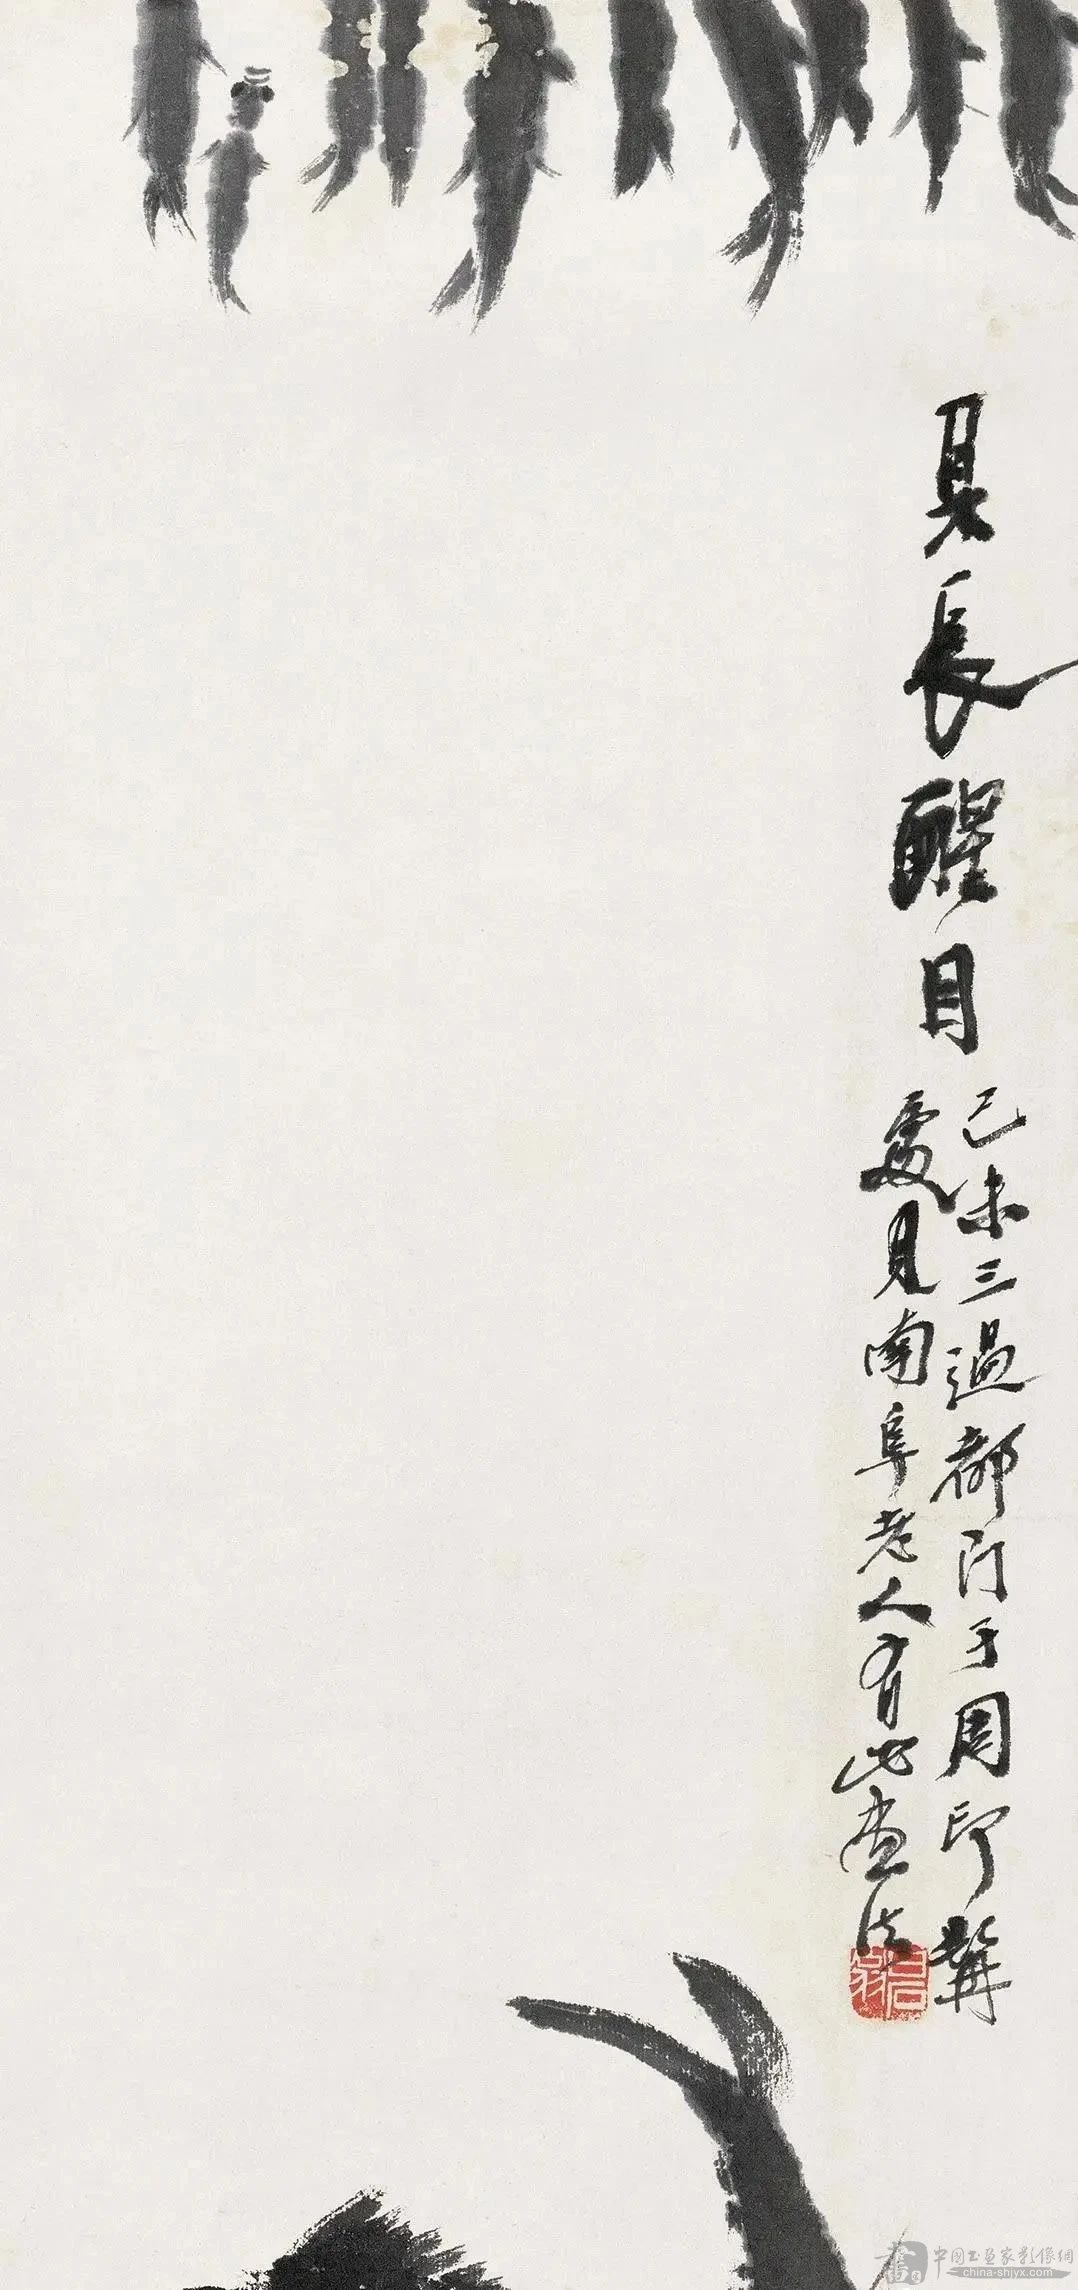 見長醒目
己未三過都門于周印髯
處見南阜老人有此畫法
白石翁
中国书画家影像網
china-shjyx.com